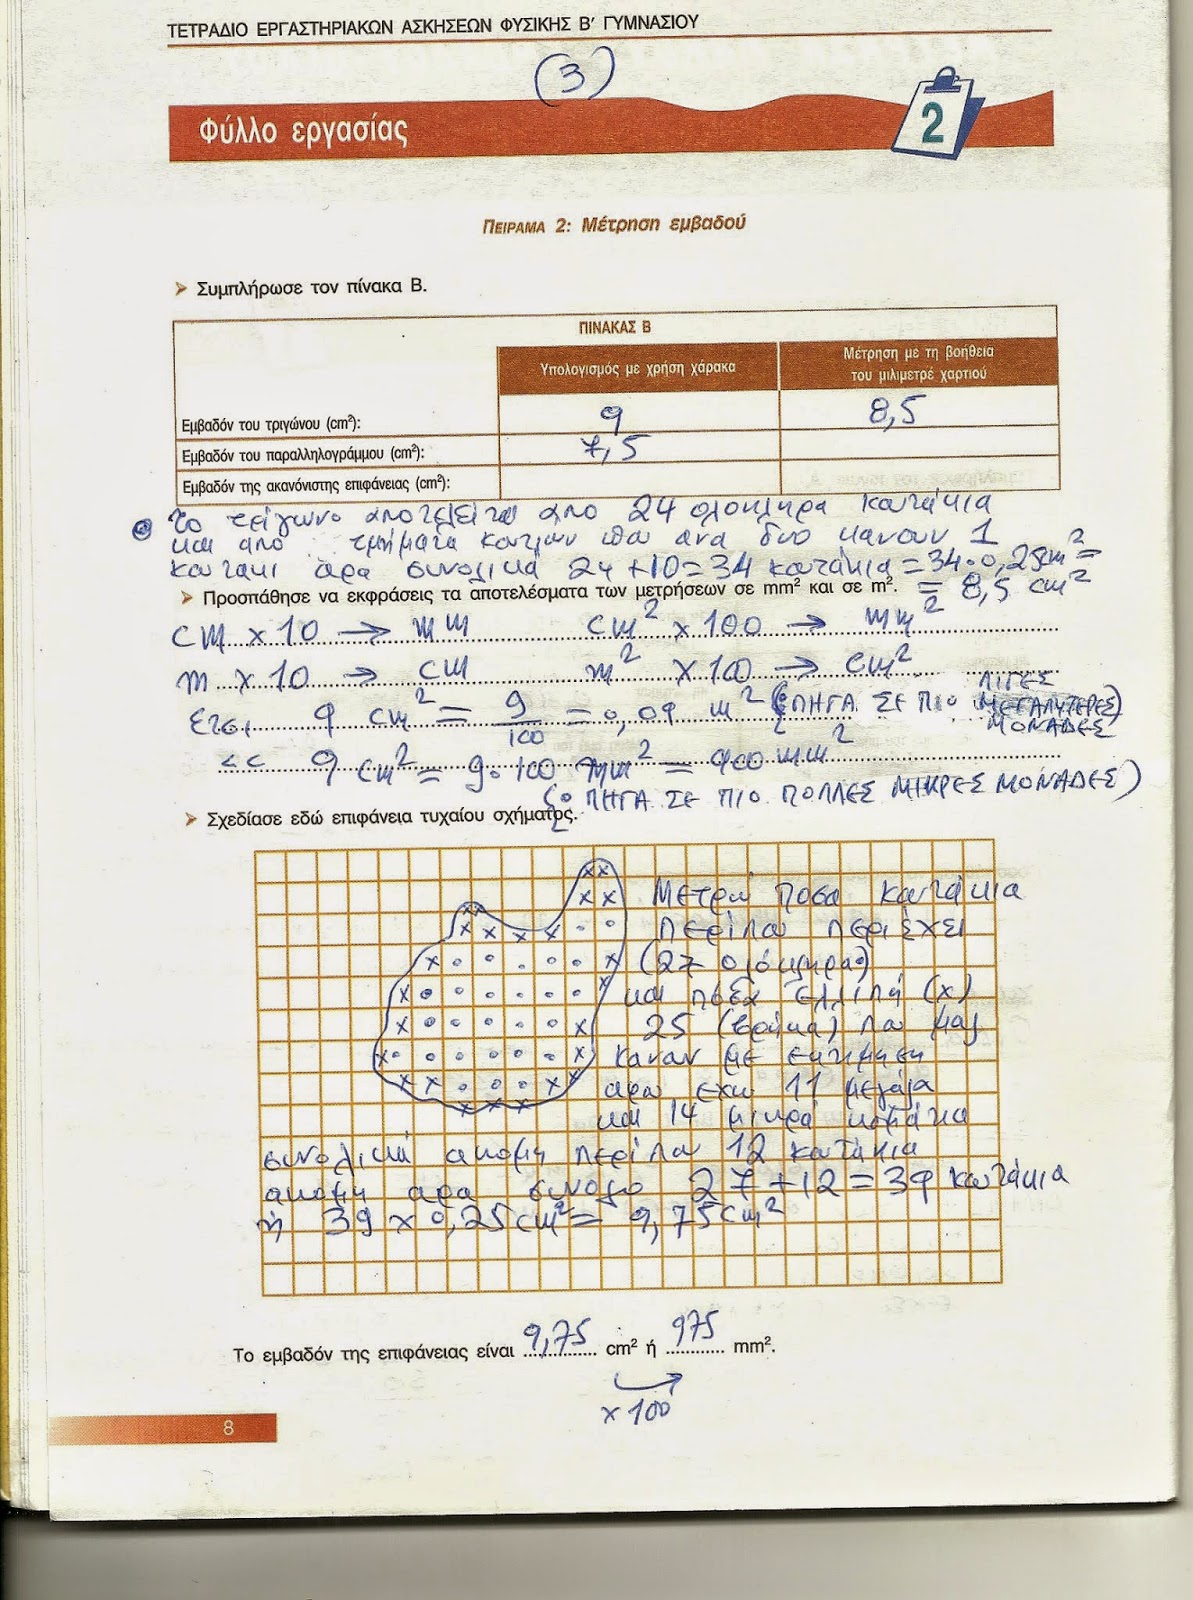 ΤΕΤΡΑΔΙΟ ΕΡΓΑΣΤΗΡΙΑΚΩΝ ΑΣΚΗΣΕΩΝ ΦΥΣΙΚΗΣ Β' ΓΥΜΝΑΣΙΟΥ
3
Φύλλο εργασίας
2
ΠΕΙΡΑΜΑ 2: Μέτρηση εμβαδού
➤ Συμπλήρωσε τον πίνακα Β.
ΠΙΝΑΚΑΣ Β
Υπολογισμός με χρήση χάρακα
Μέτρηση με τη βοήθεια
του μιλιμετρέ χαρτιού
Εμβαδόν του τριγώνου (cm²): 9 8,5
Εμβαδόν του παραλληλογράμμου (cm²): 7,5
Εμβαδόν της ακανόνιστης επιφάνειας (cm²):
το τρίγωνο αποτελείται απο 24 ολοκληρα κουτάκια
και απο τμήματα κουτιων που ανα δυο κανουν 1
κουτακι άρα συνολικά 24 + 10 = 34 κουτάκια = 34 · 0,25cm² =
= 8,5 cm²
➤ Προσπάθησε να εκφράσεις τα αποτελέσματα των μετρήσεων σε mm² και σε m².
cm x 10 → mm cm² x 100 → mm²
m x 10 → cm m² x 100 → cm²
ΛΙΓΕΣ
ετσι 9 cm² = 9/100 = 0,09 m² (ΠΗΓΑ ΣΕ ΠΙΟ ΜΕΓΑΛΥΤΕΡΕΣ)
ΜΟΝΑΔΕΣ
<< 9 cm² = 9 · 100 mm² = 900 mm²
(ΠΗΓΑ ΣΕ ΠΙΟ ΠΟΛΛΕΣ ΜΙΚΡΕΣ ΜΟΝΑΔΕΣ)
➤ Σχεδίασε εδώ επιφάνεια τυχαίου σχήματος.
Μετρώ ποσα κουτάκια
περίπου περιέχει
(27 ολόκληρα)
και ποσα ελλιπή (x)
25 (βρήκα) που μαζι
καναν με εκτιμηση
αρα εχω 11 μεγάλα
και 14 μικρά κομάτια
συνολικά ακομη περίπου 12 κουτάκια
ακομη αρα συνολο 27 + 12 = 39 κουτάκια
ή 39 x 0,25cm² = 9,75cm²
Το εμβαδόν της επιφάνειας είναι 9,75 cm² ή 975 mm².
x 100
8